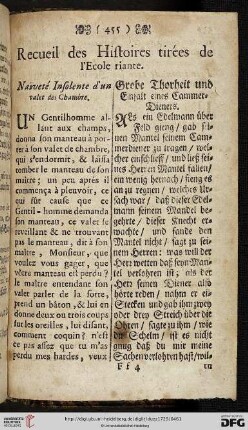 ( 455 )
Recueil des Histoires tirées de
l'Ecole riante.
Naiveté Insolente d'un
valet de Chambre.
UN Gentilhomme al-
lant aux champs,
donna son manteau à por-
ter à son valet de chambre,
qui s'endormit, & laissa
tomber le manteau de son
maitre; un peu après il
commença à pleuvoir, ce
qui fût cause que ce
Gentil-homme demanda
son manteau, ce valet se
reveillant & ne trouvant
pas le manteau, dit à son
maître, Monsieur, que
voulez vous gager, que
vôtre manteau est perdu?
le maitre entendant son
valet parler de la sorte,
prend un bâton, & lui en
donne deux ou trois coups
sur les oreilles, lui disant,
comment coquin! n'est
ce pas assez que tu m'as
perdu mes hardes, veux
Grobe Thorheit und
Einfalt eines Cammer-
Dieners.
Als ein Edelmann über
Feld gieng, gab er sei-
nen Mantel seinem Cam-
merdiener zu tragen, wel-
cher einschlieff, und ließ sei-
nes Herren Mantel fallen;
ein wenig hernach, fieng es
an zu regnen, welches Ur-
sach war, daß dieser Edel-
mann seinen Mandel be-
gehrte, dieser Knecht er-
wachte, und fande den
Mantel nicht, sagt zu sei-
nem Herren: was will der
Herr wetten daß sein Man-
tel verlohren ist; als der
Herr seinen Diener also
hörte reden, nahm er ei-
Stecken und gab ihm zwey
oder drey Streich über die
Ohren, sagte zu ihm, wie
du Schelm, ist es nicht
gnug daß du mir meine
Sachen verlohren hast, wils
Ff 4
tu